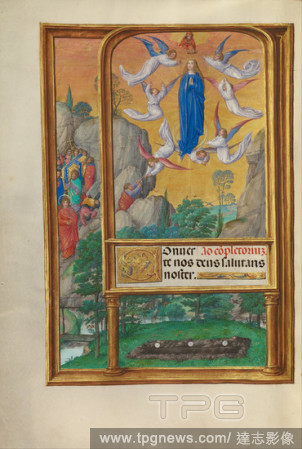 Conuer Ad cõpletoriuz
te nos deus salutaris
noster.
TPG
www.tpgnews.com / 達志影像